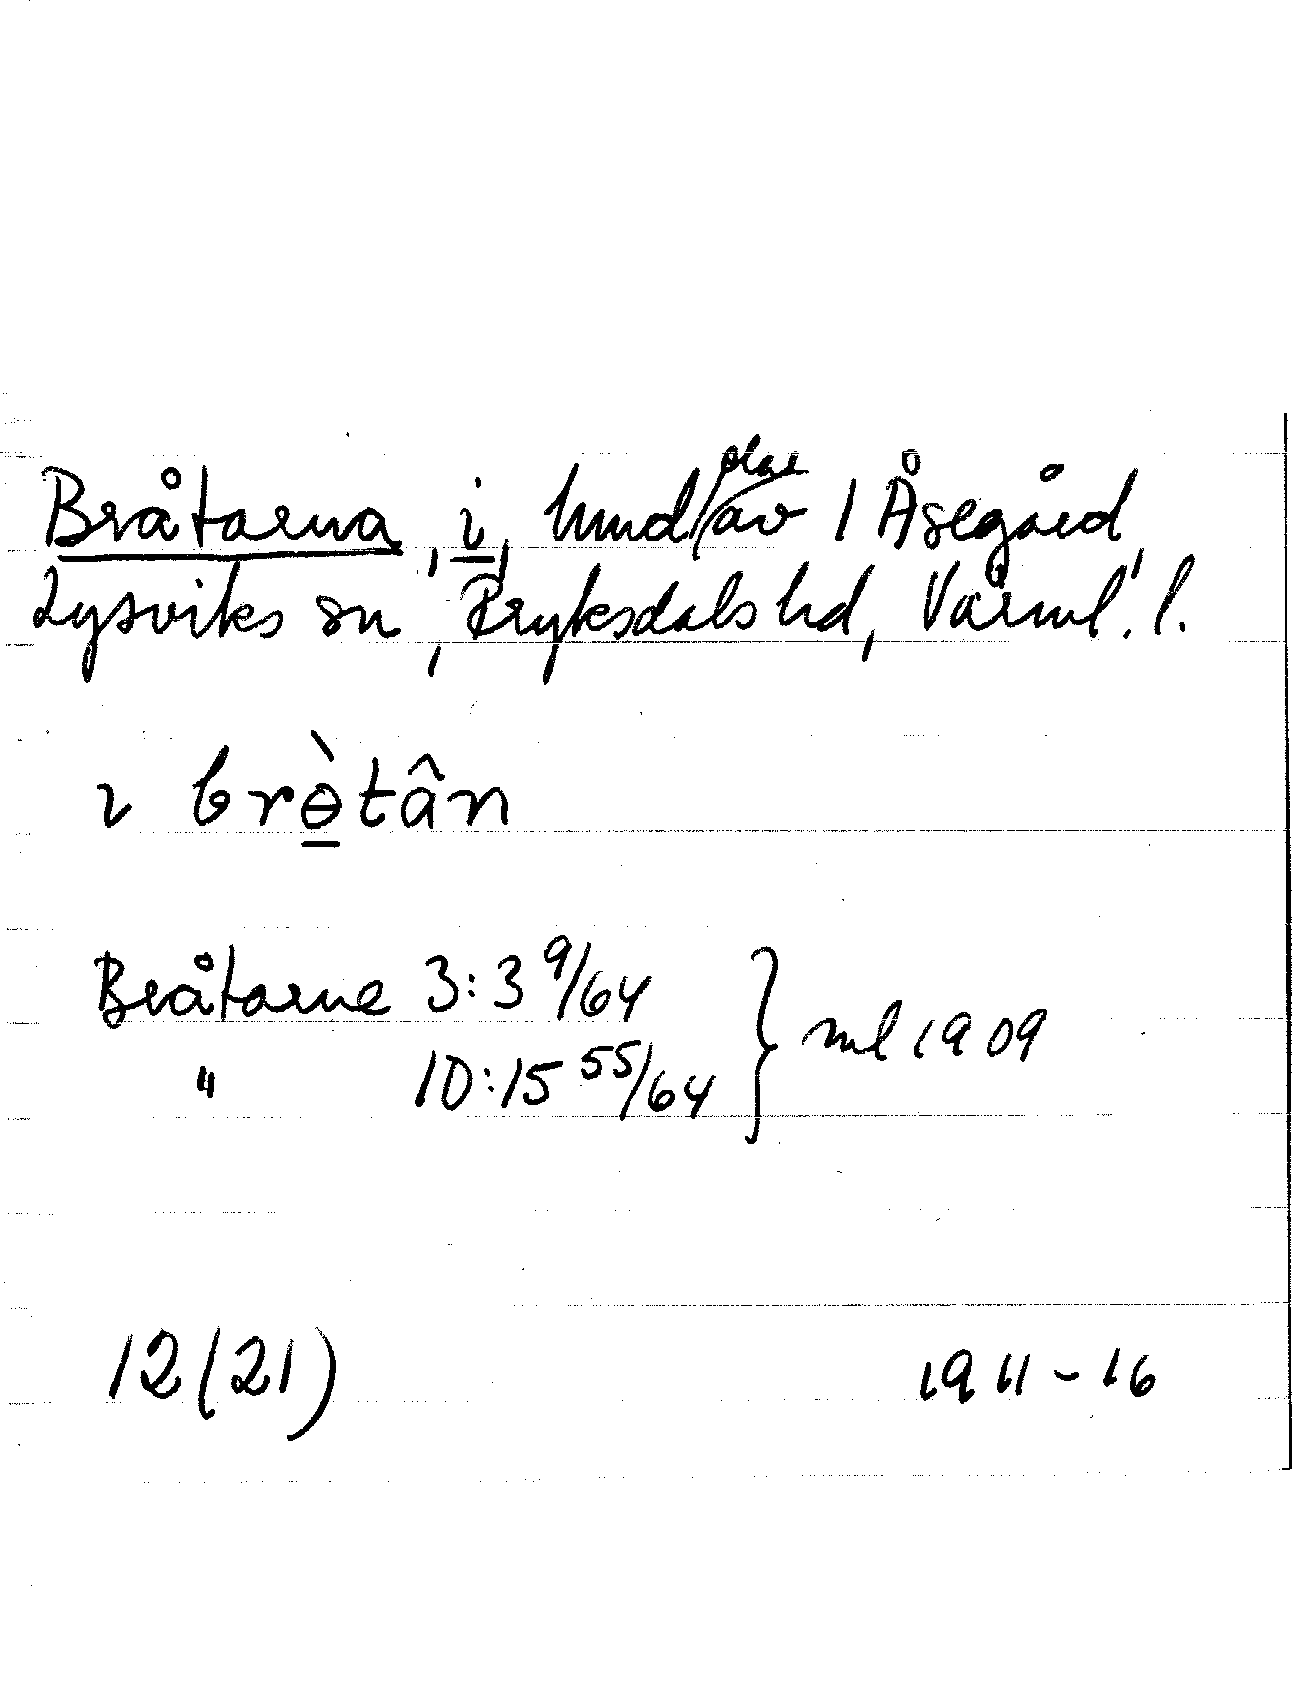 Bråtarna, i, hmd/dar av 1 Åsegård
Lysviks sn, Fryksdals hd, Värml. l.
ı brɵ̀tân
Bråtarne 3:3 9/64
" 10:15 55/64 } ml 1909
12(21) 1911-16